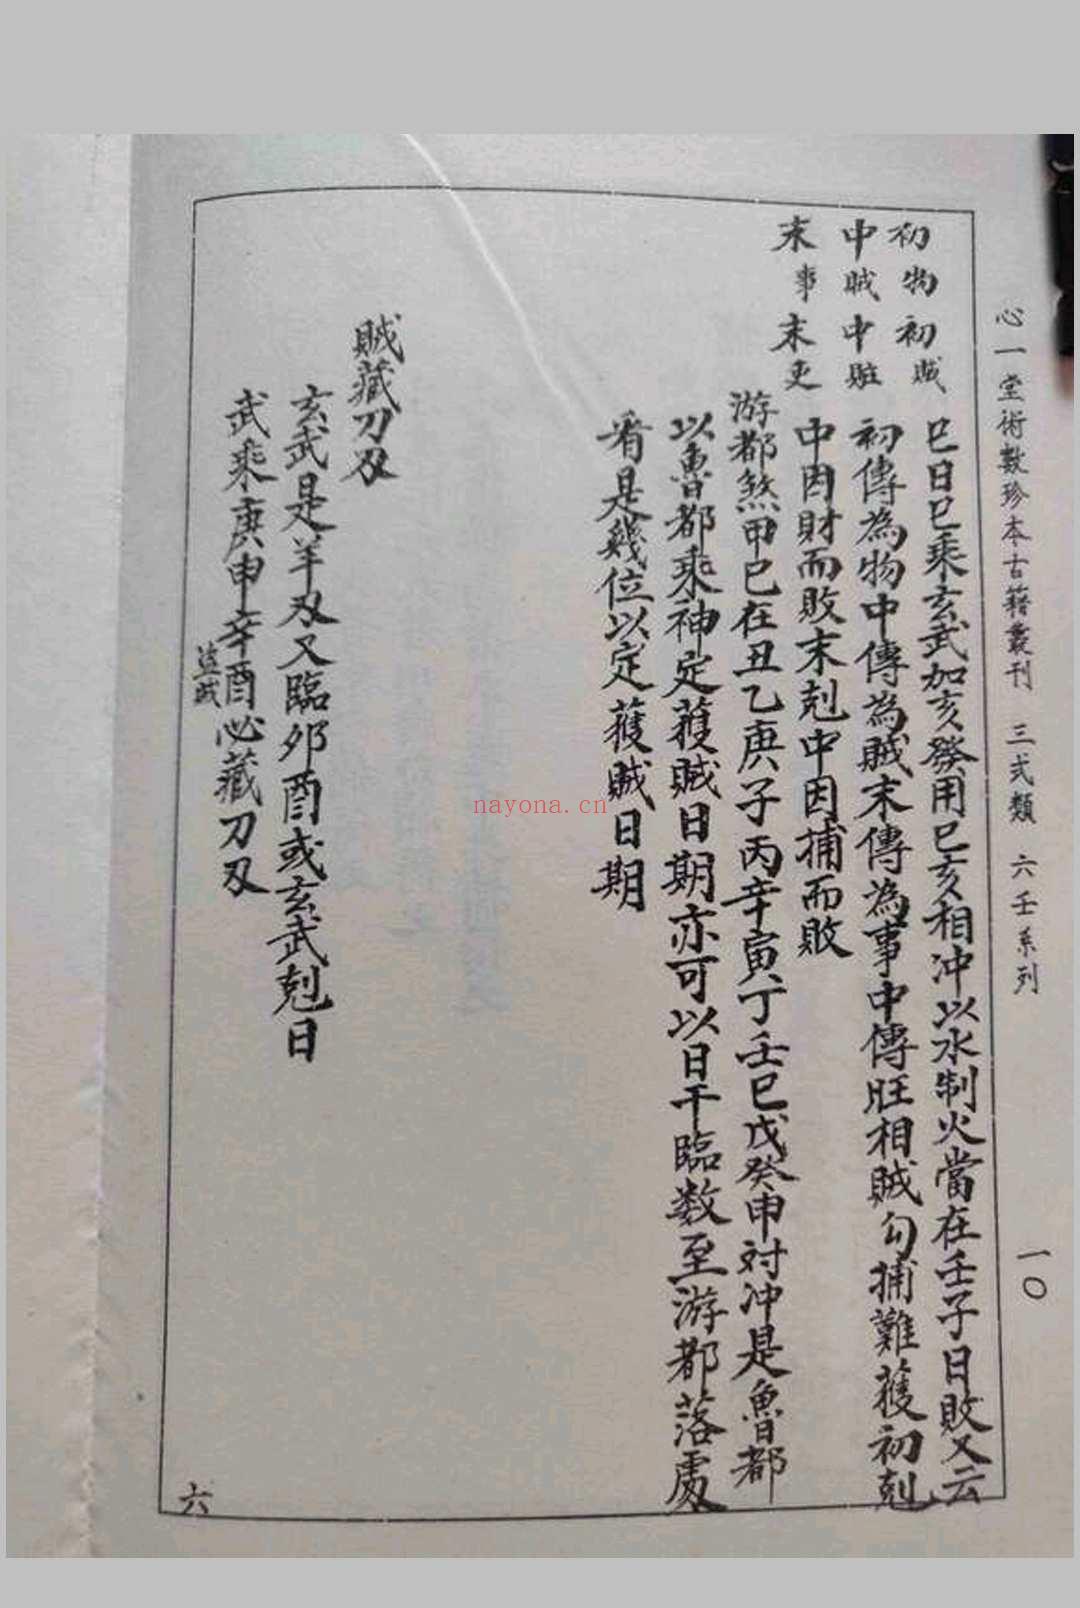 心一堂術數珍本古籍叢刊 三式類 六壬系列
一〇
初物初賊
中賊中賍
末事末吏
巳日巳乘玄武加亥發用巳亥相冲以水制火當在壬子日敗又云
初傳為物中傳為賊末傳為事中傳旺相賊勾捕難獲初剋
中因財而敗末剋中因捕而敗
游都煞甲巳在丑乙庚子丙辛寅丁壬巳戊癸申対冲是魯都
以魯都乘神定獲賊日期亦可以日干臨数至游都落處
看是幾位以定獲賊日期
賊藏刀刃
玄武是羊刃又臨夘酉或玄武剋日
武乘庚申辛酉必藏刀刃
盗賊
六
nayona.cn